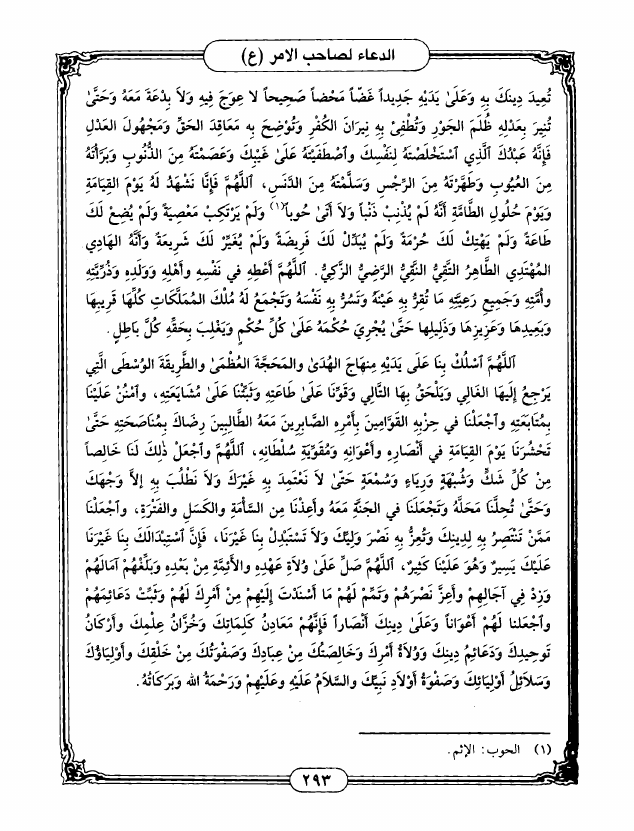 الدعاء لصاحب الامر (ع)
تُعِيدَ دِينَكَ بِهِ وَعَلَىٰ يَدَيْهِ جَدِيداً غَضّاً مَحْضاً صَحِيحاً لا عِوَجَ فِيهِ وَلاَ بِدْعَةَ مَعَهُ وَحَتَّىٰ
تُنِيرَ بِعَدْلِهِ ظُلَمَ الجَوْرِ وَتُطْفِىْ بِهِ نِيرَانَ الكُفْرِ وَتُوْضِحَ بِهِ مَعَاقِدَ الحَقِّ وَمَجْهُولَ العَدْلِ
فَإِنَّهُ عَبْدُكَ ٱلَّذِي ٱسْتَخْلَصْتَهُ لِنَفْسِكَ وٱصْطَفَيْتَهُ عَلَىٰ غَيْبِكَ وَعَصَمْتَهُ مِنَ الذُّنُوبِ وَبَرَّأْتَهُ
مِنَ العُيُوبِ وَطَهَّرْتَهُ مِنَ الرِّجْسِ وَسَلَّمْتَهُ مِنَ الدَّنَسِ، ٱللَّهُمَّ فَإِنَّا نَشْهَدُ لَهُ يَوْمَ القِيَامَةِ
وَيَوْمَ حُلُولِ الطَّامَّةِ أَنَّهُ لَمْ يُذْنِبْ ذَنْباً وَلاَ أَتَىٰ حُوباً(١) وَلَمْ يَرْتَكِبْ مَعْصِيَةً وَلَمْ يُضِعْ لَكَ
طَاعَةً وَلَمْ يَهْتِكْ لَكَ حُرْمَةً وَلَمْ يُبَدِّلْ لَكَ فَرِيضَةً وَلَمْ يُغَيِّرْ لَكَ شَرِيعَةً وَأَنَّهُ الهَادِي
المُهْتَدِي الطَّاهِرُ التَّقِيُّ النَّقِيُّ الرَّضِيُّ الزَّكِيُّ. ٱللَّهُمَّ أَعْطِهِ في نَفْسِهِ وَأَهْلِهِ وَوَلَدِهِ وَذُرِّيَّتِهِ
وأُمَّتِهِ وَجَمِيعِ رَعِيَّتِهِ مَا تُقِرُّ بِهِ عَيْنَهُ وَتَسُرُّ بِهِ نَفْسَهُ وَتَجْمَعُ لَهُ مُلْكَ المُمَلَّكَاتِ كُلِّهَا قَرِيبِهَا
وَبَعِيدِهَا وَعَزِيزِهَا وَذَلِيلِها حَتَّىٰ يُجْرِيَ حُكْمَهُ عَلَىٰ كُلِّ حُكْمٍ وَيَغْلِبَ بِحَقِّهِ كُلَّ بَاطِلٍ.
ٱللَّهُمَّ ٱسْلُكْ بِنَا عَلَى يَدَيْهِ مِنهَاجَ الهُدَىٰ وَالمَحَجَّةَ العُظْمَىٰ والطَّرِيقَةَ الوُسْطَى الَّتِي
يَرْجِعُ إِلَيهَا الغَالِي وَيَلْحَقُ بِهَا التَّالِي وَقَوِّنَا عَلَىٰ طَاعَتِهِ وَثَبِّتْنَا عَلَىٰ مُشَايَعَتِهِ، وٱمْنُنْ عَلَيْنَا
بِمُتَابَعَتِهِ وٱجْعَلْنَا في حِزْبِهِ القَوَّامِينَ بِأَمْرِهِ الصَّابِرِينَ مَعَهُ الطَّالِبِينَ رِضَاكَ بِمُنَاصَحَتِهِ حَتَّىٰ
تَحْشُرَنَا يَوْمَ القِيَامَةِ في أَنْصَارِهِ وأَعْوَانِهِ وَمُقَوِّيَةِ سُلْطَانِهِ، ٱللَّهُمَّ وٱجْعَلْ ذٰلِكَ لَنَا خَالِصاً
مِنْ كُلِّ شَكٍّ وَشُبْهَةٍ وَرِيَاءٍ وَسُمْعَةٍ حَتَّىٰ لاَ نَعْتَمِدَ بِهِ غَيْرَكَ وَلاَ نَطْلُبَ بِهِ إِلاَّ وَجْهَكَ
وَحَتَّىٰ تُحِلَّنَا مَحَلَّهُ وَتَجْعَلَنَا في الجَنَّةِ مَعَهُ وَأَعِذْنَا مِنَ السَّأْمَةِ والكَسَلِ والفَتْرَةِ، وٱجْعَلْنَا
مَمَّنْ تَنْتَصِرُ بِهِ لِدِينِكَ وَتُعِزُّ بِهِ نَصْرَ وَلِيِّكَ وَلاَ تَسْتَبْدِلْ بِنَا غَيْرَنَا، فَإِنَّ ٱسْتِبْدَالَكَ بِنَا غَيْرَنَا
عَلَيْكَ يَسِيرٌ وَهُوَ عَلَيْنَا كَثِيرٌ، ٱللَّهُمَّ صَلِّ عَلَىٰ وُلاَةِ عَهْدِهِ والأَئِمَّةِ مِنْ بَعْدِهِ وَبَلِّغْهُمْ آمَالَهُمْ
وَزِدْ فِي آجَالِهِمْ وأَعِزَّ نَصْرَهُمْ وَتَمِّمْ لَهُمْ مَا أَسْنَدْتَ إِلَيْهِمْ مِنْ أَمْرِكَ لَهُمْ وَثَبِّتْ دَعَائِمَهُمْ
وٱجْعَلنا لَهُمْ أَعْوَاناً وَعَلَىٰ دِينِكَ أَنْصَاراً فَإِنَّهُمْ مَعَادِنُ كَلِمَاتِكَ وَخُزَّانُ عِلْمِكَ وأَرْكَانُ
تَوحِيدِكَ وَدَعَائِمُ دِينِكَ وَوُلاَةُ أَمْرِكَ وَخَالِصَتُكَ مِنْ عِبَادِكَ وَصَفْوَتُكَ مِنْ خَلْقِكَ وأَوْلِيَاؤُكَ
وَسَلاَئِلُ أَوْلِيَائِكَ وَصَفْوَةُ أَوْلاَدِ نَبِيِّكَ والسَّلاَمُ عَلَيْهِ وعَلَيْهِمْ وَرَحْمَةُ الله وَبَرَكَاتُهُ.
(١) الحوب: الإثم.
٢٩٣